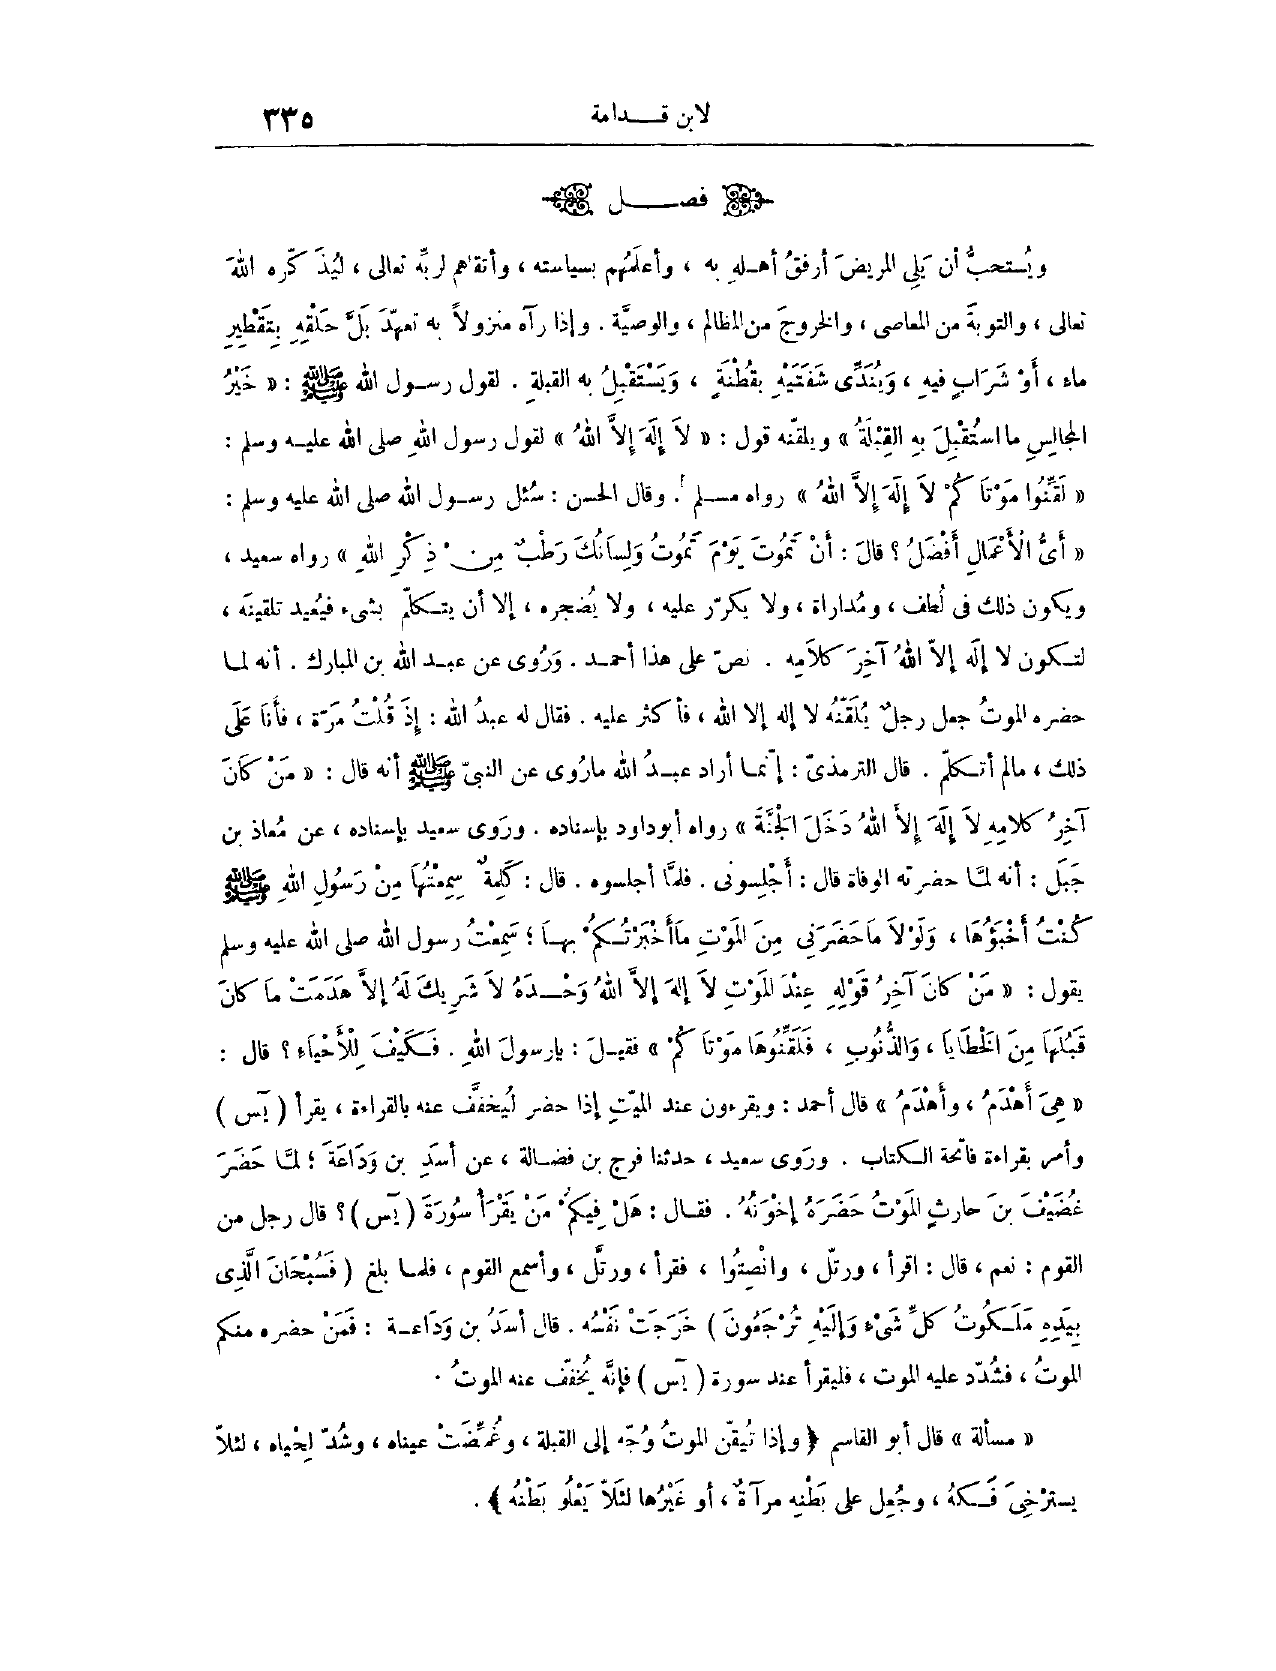 لابن قـــدامة ٣٣٥
فصـــل
ويُستحبُّ أن يَلِى المريضَ أرفقُ أهـلهِ به ، وأعلَمُهم بسياسته ، وأتقاهم لربِّه تعالى ، ليُذَكّره اللهَ
تعالى ، والتوبةَ من المعاصى ، والخروجَ من المظالم ، والوصيَّة . وإذا رآه منزولاً به تعهّدَ بَلَّ حَلْقِهِ بِتَقْطِيرِ
ماء ، أَوْ شَرَابٍ فيهِ ، وَيُنَدِّى شَفَتَيْهِ بِقُطْنَةٍ ، وَيَسْتَقْبِلُ به القبلةِ . لقول رسـول الله ﷺ : « خَيْرُ
المجالِسِ ما استُقْبِلَ بِهِ القِبْلَةُ » ويلقّنه قول : « لاَ إِلَهَ إِلاَّ اللهُ » لقول رسول اللهِ صلى الله عليـه وسلم :
« لَقِّنُوا مَوْتَاكُمْ لاَ إِلَهَ إِلاَّ اللهُ » رواه مسـلم . وقال الحسن : سُئل رسـول الله صلى الله عليه وسلم :
« أَىُّ الْأَعْمَالِ أَفْضَلُ ؟ قالَ : أَنْ تَمُوتَ يَوْمَ تَمُوتُ وَلِسَانُكَ رَطْبٌ مِن ْ ذِكْرِ اللهِ » رواه سعيد ،
ويكون ذلك فى لُطف ، ومُداراة ، ولا يكرّر عليه ، ولا يُضجره ، إلا أن يتـكلّم بشىء فيُعيد تلقينَه ،
لتـكون لا إلَه إلاّ اللهُ آخِرَ كلاَمِه . نصّ على هذا أحمـد . وَرُوى عن عبـد الله بن المبارك . أنه لمـا
حضره الموتُ جعل رجلٌ يُلَقّنُه لا إله إلا الله ، فأكثر عليه . فقال له عبدُ الله : إِذَ قُلْتُ مَرّة ، فأَنَا عَلَى
ذلك ، مالم أتـكلّم . قال الترمذىّ : إنّمـا أراد عبـدُ الله مارُوى عن النبىّ ﷺ أنه قال : « مَنْ كَانَ
آخِرُ كلامِهِ لاَ إِلَهَ إِلاَ اللهُ دَخَلَ الجَنَّةَ » رواه أبوداود بإسناده . ورَوى سعيد بإسناده ، عن مُعاذ بن
جَبَل : أنه لمَّا حضرته الوفاة قال : أَجْلِسونى . فلمَّا أجلسوه . قال : كَلِمةٌ سمِعْتُهَا مِنْ رَسُولِ اللهِ ﷺ
كُنْتُ أَخْبَؤُهَا ، وَلَوْلاَ مَاحَضَرَنِى مِنَ المَوْتِ مَاأَخْبَرْتُـكُمْ بهـا ؛ سَمِعْتُ رسول الله صلى الله عليه وسلم
يقول : « مَنْ كَانَ آخِرُ قَوْلِهِ عِنْدَ المَوْتِ لاَ إِلهَ إِلاَّ اللهُ وَحْـدَهُ لاَ شَرِيكَ لَهُ إِلاَّ هَدَمَتْ مَا كَانَ
قَبْلَهَا مِنَ الخَطَايَا ، وَالذُّنُوبِ ، فَلَقِّنُوهَا مَوْتَاكُمْ » فقيـلَ : يارسولَ اللهِ . فَـكَيْفَ لِلْأَحْيَاءِ ؟ قال :
« هِىَ أَهْدَمُ ، وأَهْدَمُ » قال أحمد : ويقرءون عند الميّتِ إذا حضر ليُخفَّف عنه بالقراءة ، يقرأ ( يَس )
وأمر بقراءة فاتحة الـكتاب . ورَوى سعيد ، حدثنا فرج بن فضـالة ، عن أسَدِ بن وَدَاعَةَ ؛ لمَّا حَضَرَ
غُضَيْفَ بنَ حارثٍ المَوْتُ حَضَرَهُ إِخْوَنُهُ . فقـال : هَلْ فِيكمْ مَنْ يَقْرَأُ سُورَةَ ( يَس ) ؟ قال رجل من
القوم : نعم ، قال : اقرأ ، ورتّل ، وانْصِتُوا ، فقرأ ، ورتَّل ، وأسمع القوم ، فلمـا بلغ ( فَسُبْحَانَ الَّذِى
بِيَدِهِ مَلَـكُوتُ كلِّ شَىْءٍ وَإِلَيْهِ تُرْجَعُونَ ) خَرَجَتْ نَفْسُه . قال أسَدُ بن وَدَاعـة : فَمَنْ حضره منكم
الموتُ ، فشُدّد عليه الموت ، فليقرأ عند سورة ( يَس ) فإنَّه يُخفّف عنه الموتُ .
« مسألة » قال أبو القاسم ﴿ وإذا تيُقّن الموتُ وُجّه إلى القبلة ، وغُمِّضَتْ عيناه ، وشُدّ لِحْياه ، لئلاّ
يسترْخِىَ فَـكهُ ، وجُعِل على بَطْنِه مرآةٌ ، أو غَيْرُها لئَلاّ يَعْلُو بَطْنُهُ ﴾ .